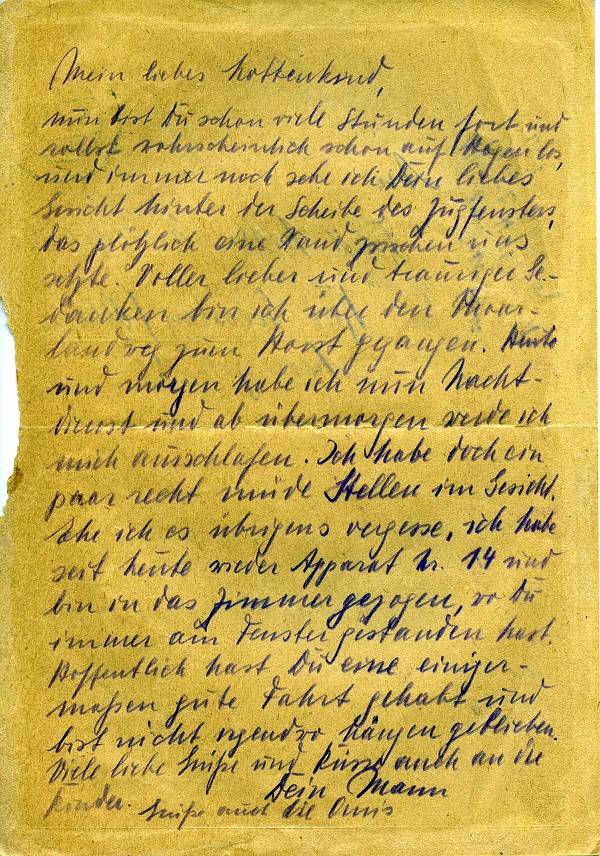 Mein liebes Mottenkind,
nun bist Du schon viele Stunden fort und
rollst wahrscheinlich schon auf Hagen los,
und immer noch sehe ich Dein liebes
Gesicht hinter der Scheibe des Zugfensters,
das plötzlich eine Wand zwischen uns
setzte. Voller lieber und trauriger Ge-
danken bin ich über den
landweg zum Horst gegangen. Heute
und morgen habe ich nun Nacht-
dienst und ab übermorgen werde ich
mich ausschlafen. Ich habe doch ein
paar recht müde Stellen im Gesicht.
Ehe ich es übrigens vergesse, ich habe
seit heute wieder Apparat Nr. 14 und
bin in das Zimmer gezogen, wo Du
immer am Fenster gestanden hast.
Hoffentlich hast Du eine einiger-
maßen gute Fahrt gehabt und
bist nicht irgendwo hängen geblieben.
Viele liebe Grüße und Küsse auch an die
Kinder. Dein Mann
Grüße auch die Omis